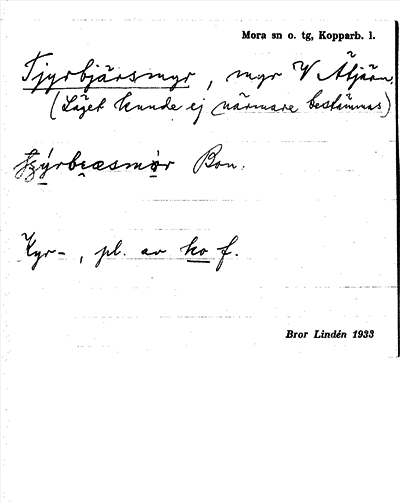 Mora sn o. tg, Kopparb. l.
Tjyrbjärsmyr, myr V Åtjärn.
(Läget kunde ej närmare bestämmas)
Bon.
Kyr-, pl. av ko f.
Bror Lindén 1933